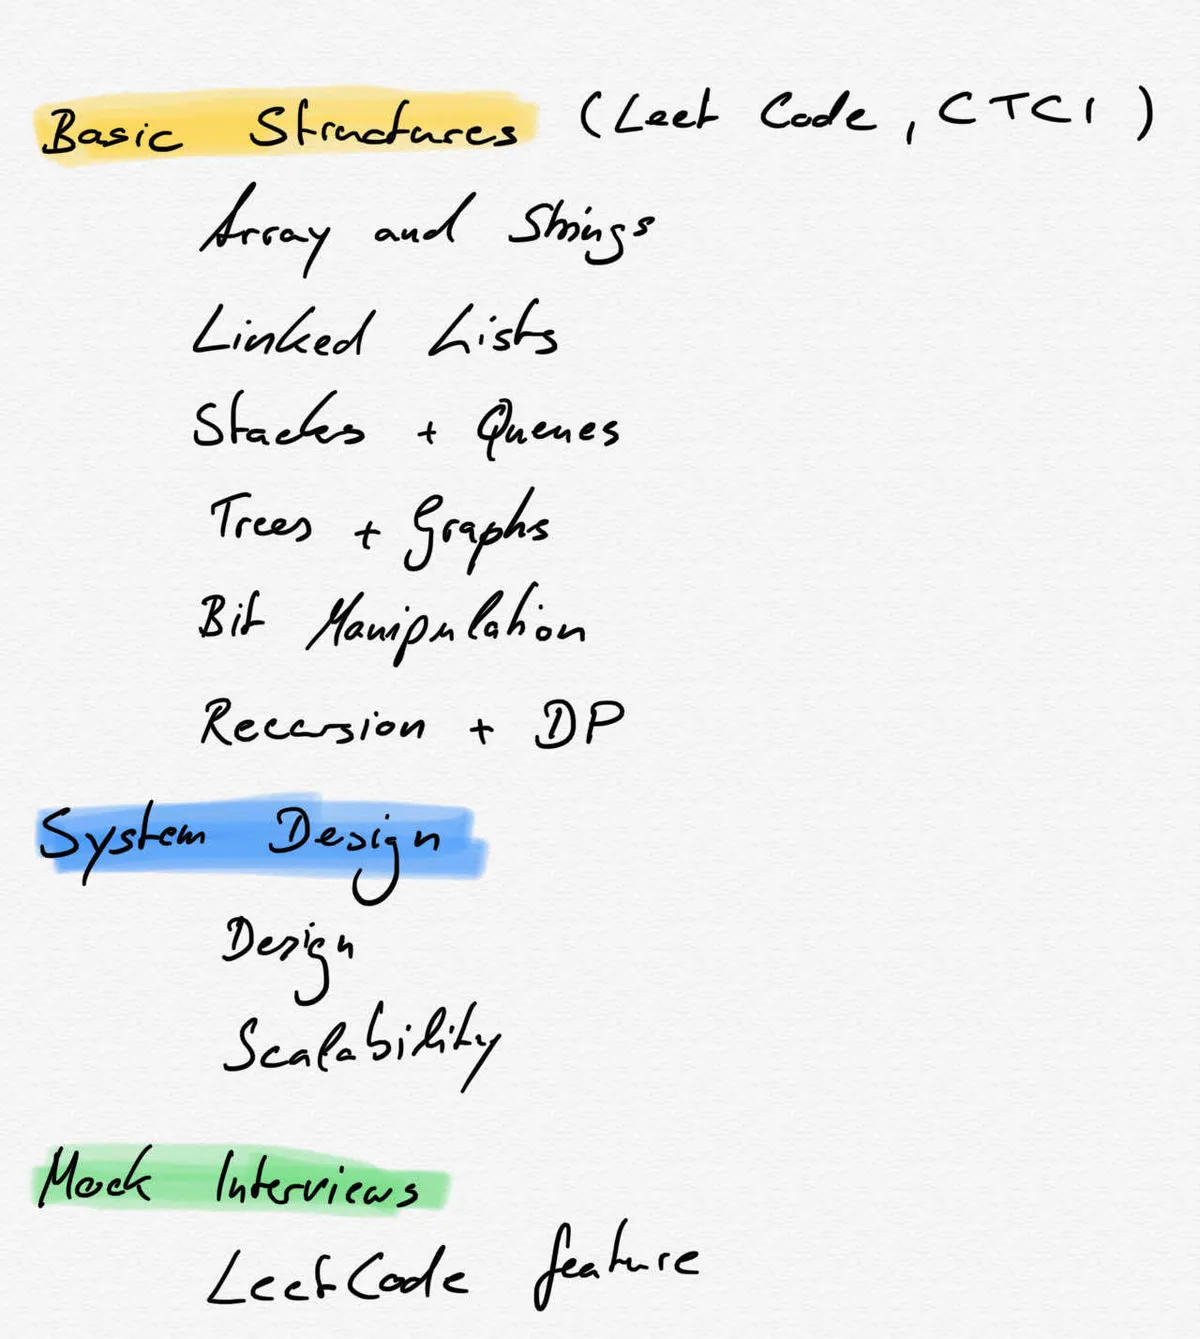 Basic Structures (Leet Code, CTCI)
Array and Strings
Linked Lists
Stacks + Queues
Trees + Graphs
Bit Manipulation
Recursion + DP
System Design
Design
Scalability
Mock Interviews
LeetCode feature